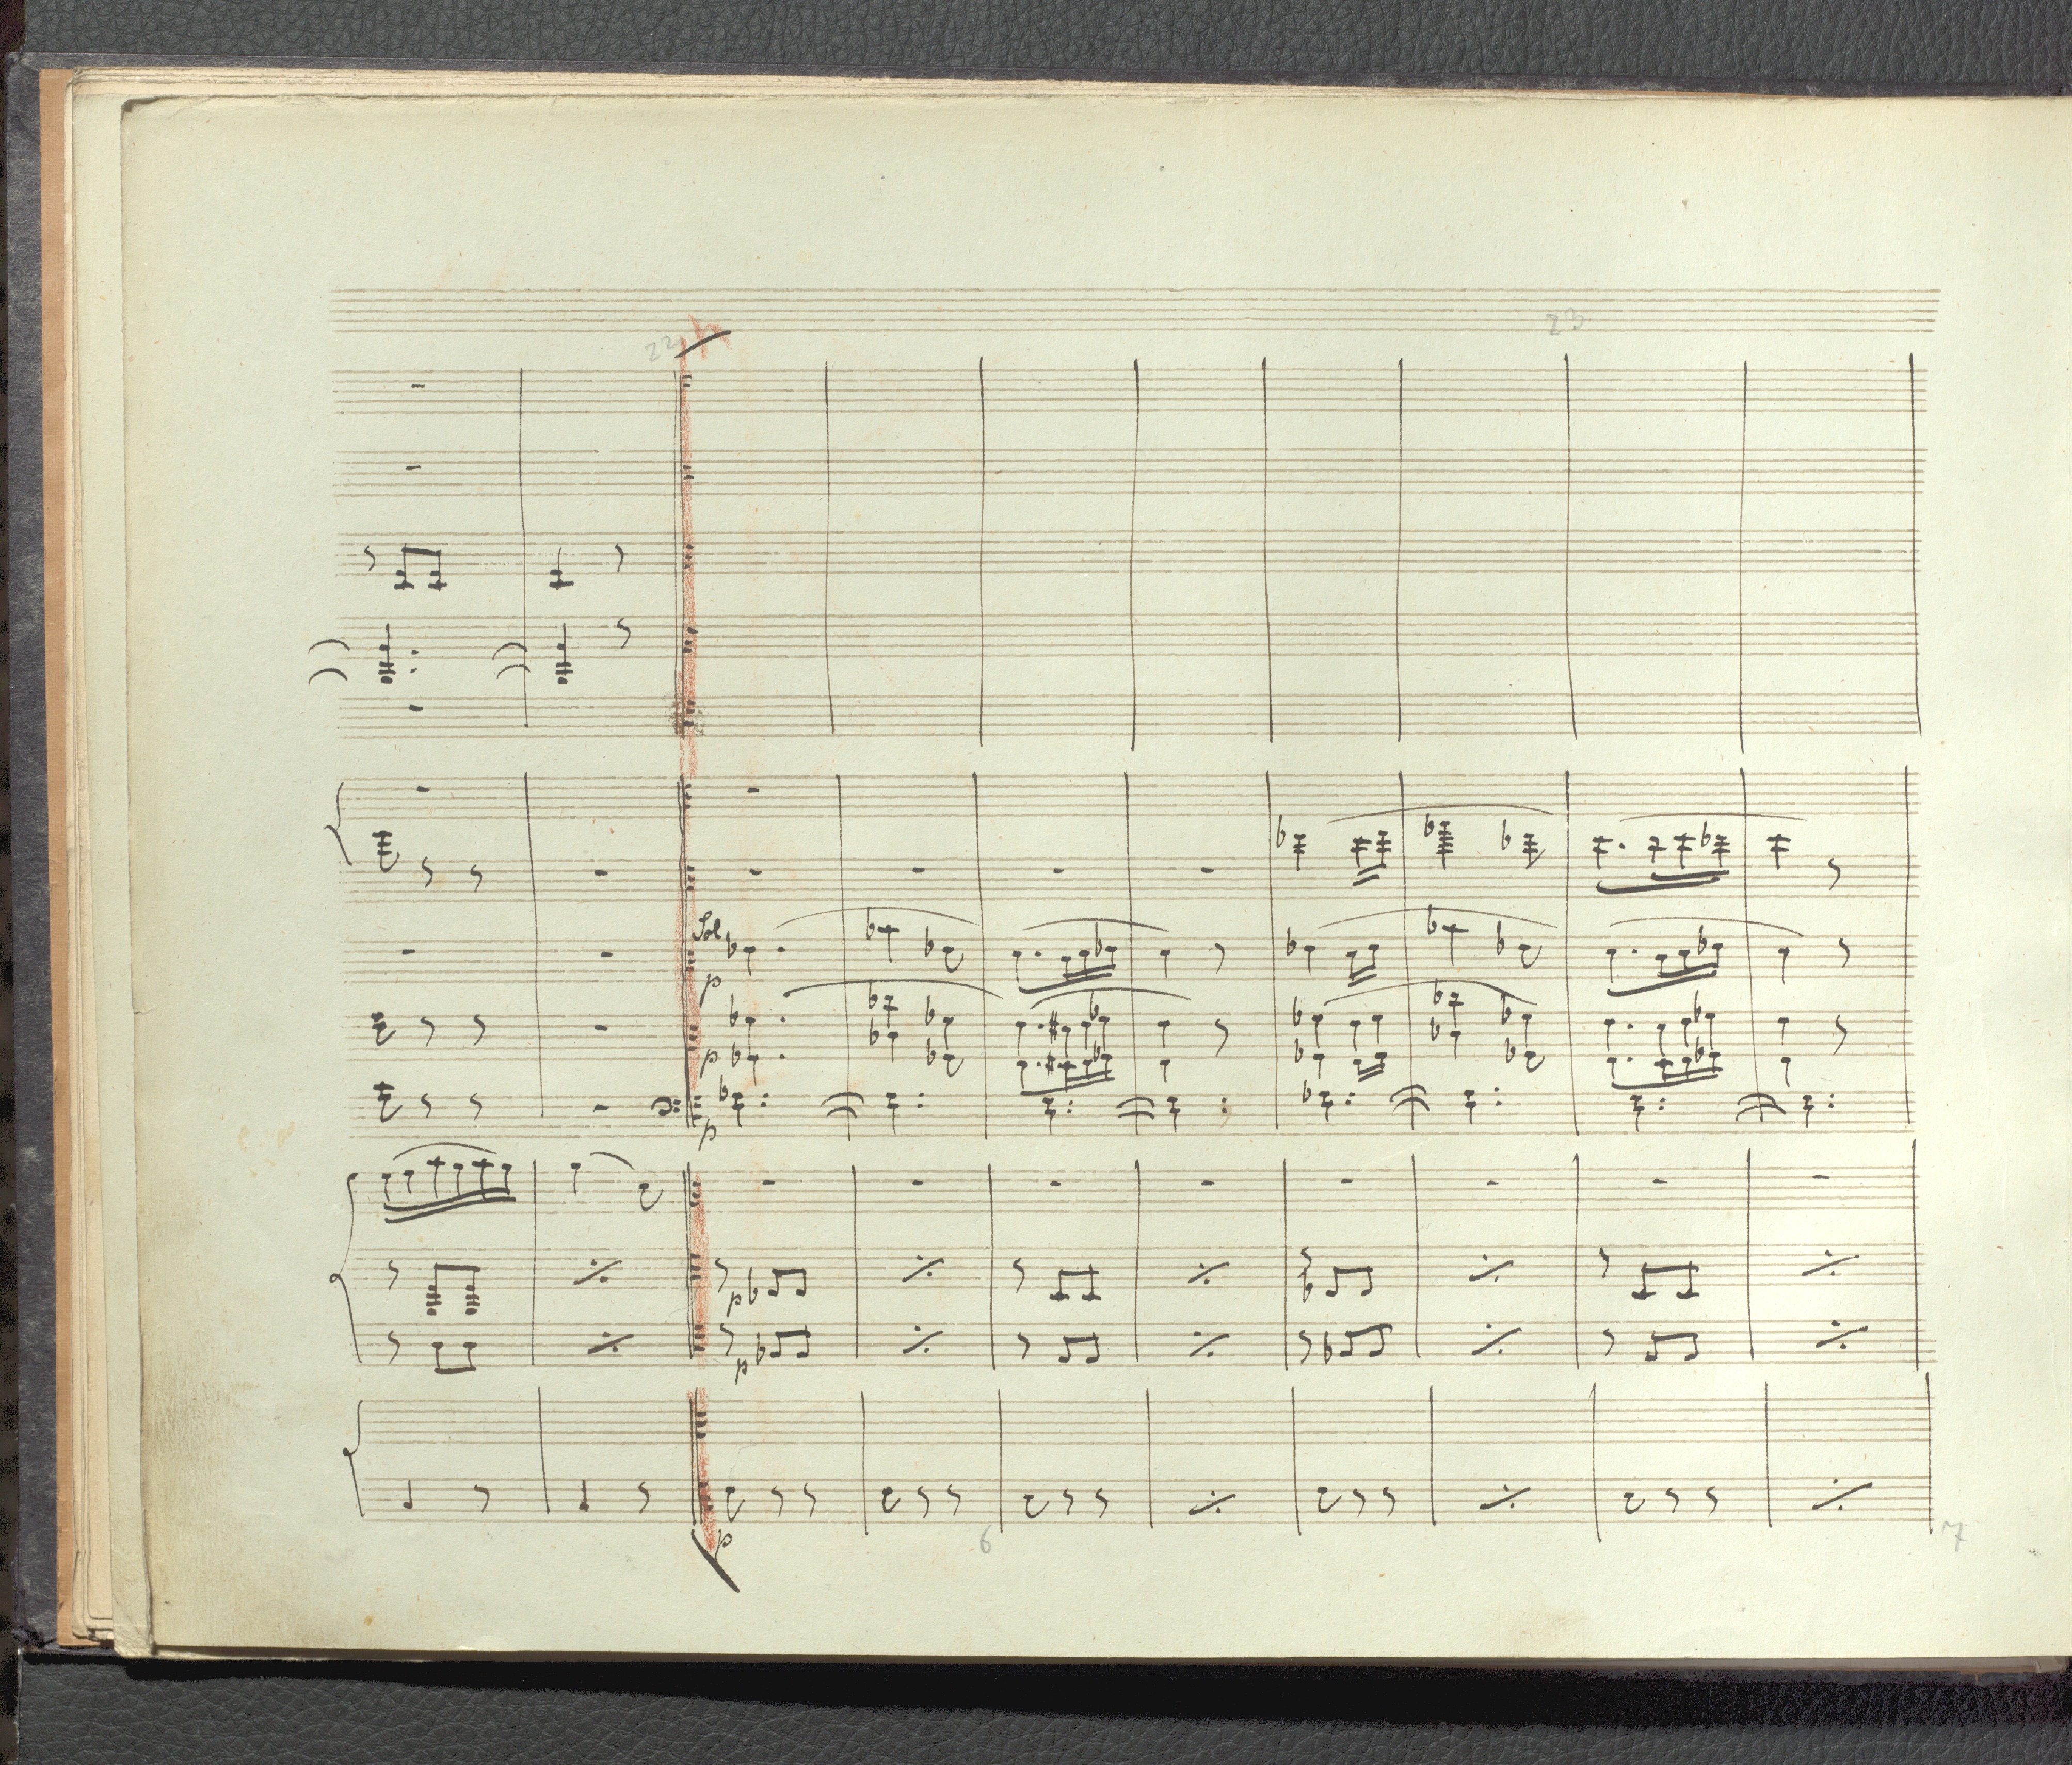 22
23
Sol
p
p
p
p
p
p
6
7